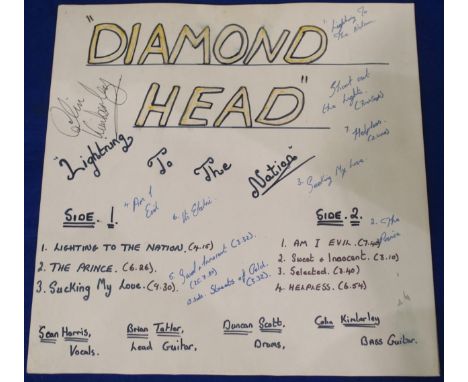 "DIAMOND
HEAD"
"Lighting To
The Nation
Shoot out
the Lights.
7. Helpless.
"Lightning To The Nation"
3. Sucking My Love.
4. Am I
Evil
6. Its Electric
SIDE. 1.
SIDE. 2.
2. The
Prince
1. LIGHTING TO THE NATION. (4.15)
2. THE PRINCE. (6.26)
3. Sucking My Love. (9.30)
5. Sweet & Innocent (3.32)
Streets of Gold.
(3.32)
1. AM I EVIL. (7.40)
2. Sweat & Innocent. (3.10)
3. Selected. (3.40)
4. HELPLESS. (6.54)
Sean Harris,
Vocals.
Brian Tatler,
Lead Guitar,
Duncan Scott,
Drums,
Colin Kimberley
Bass Guitar.